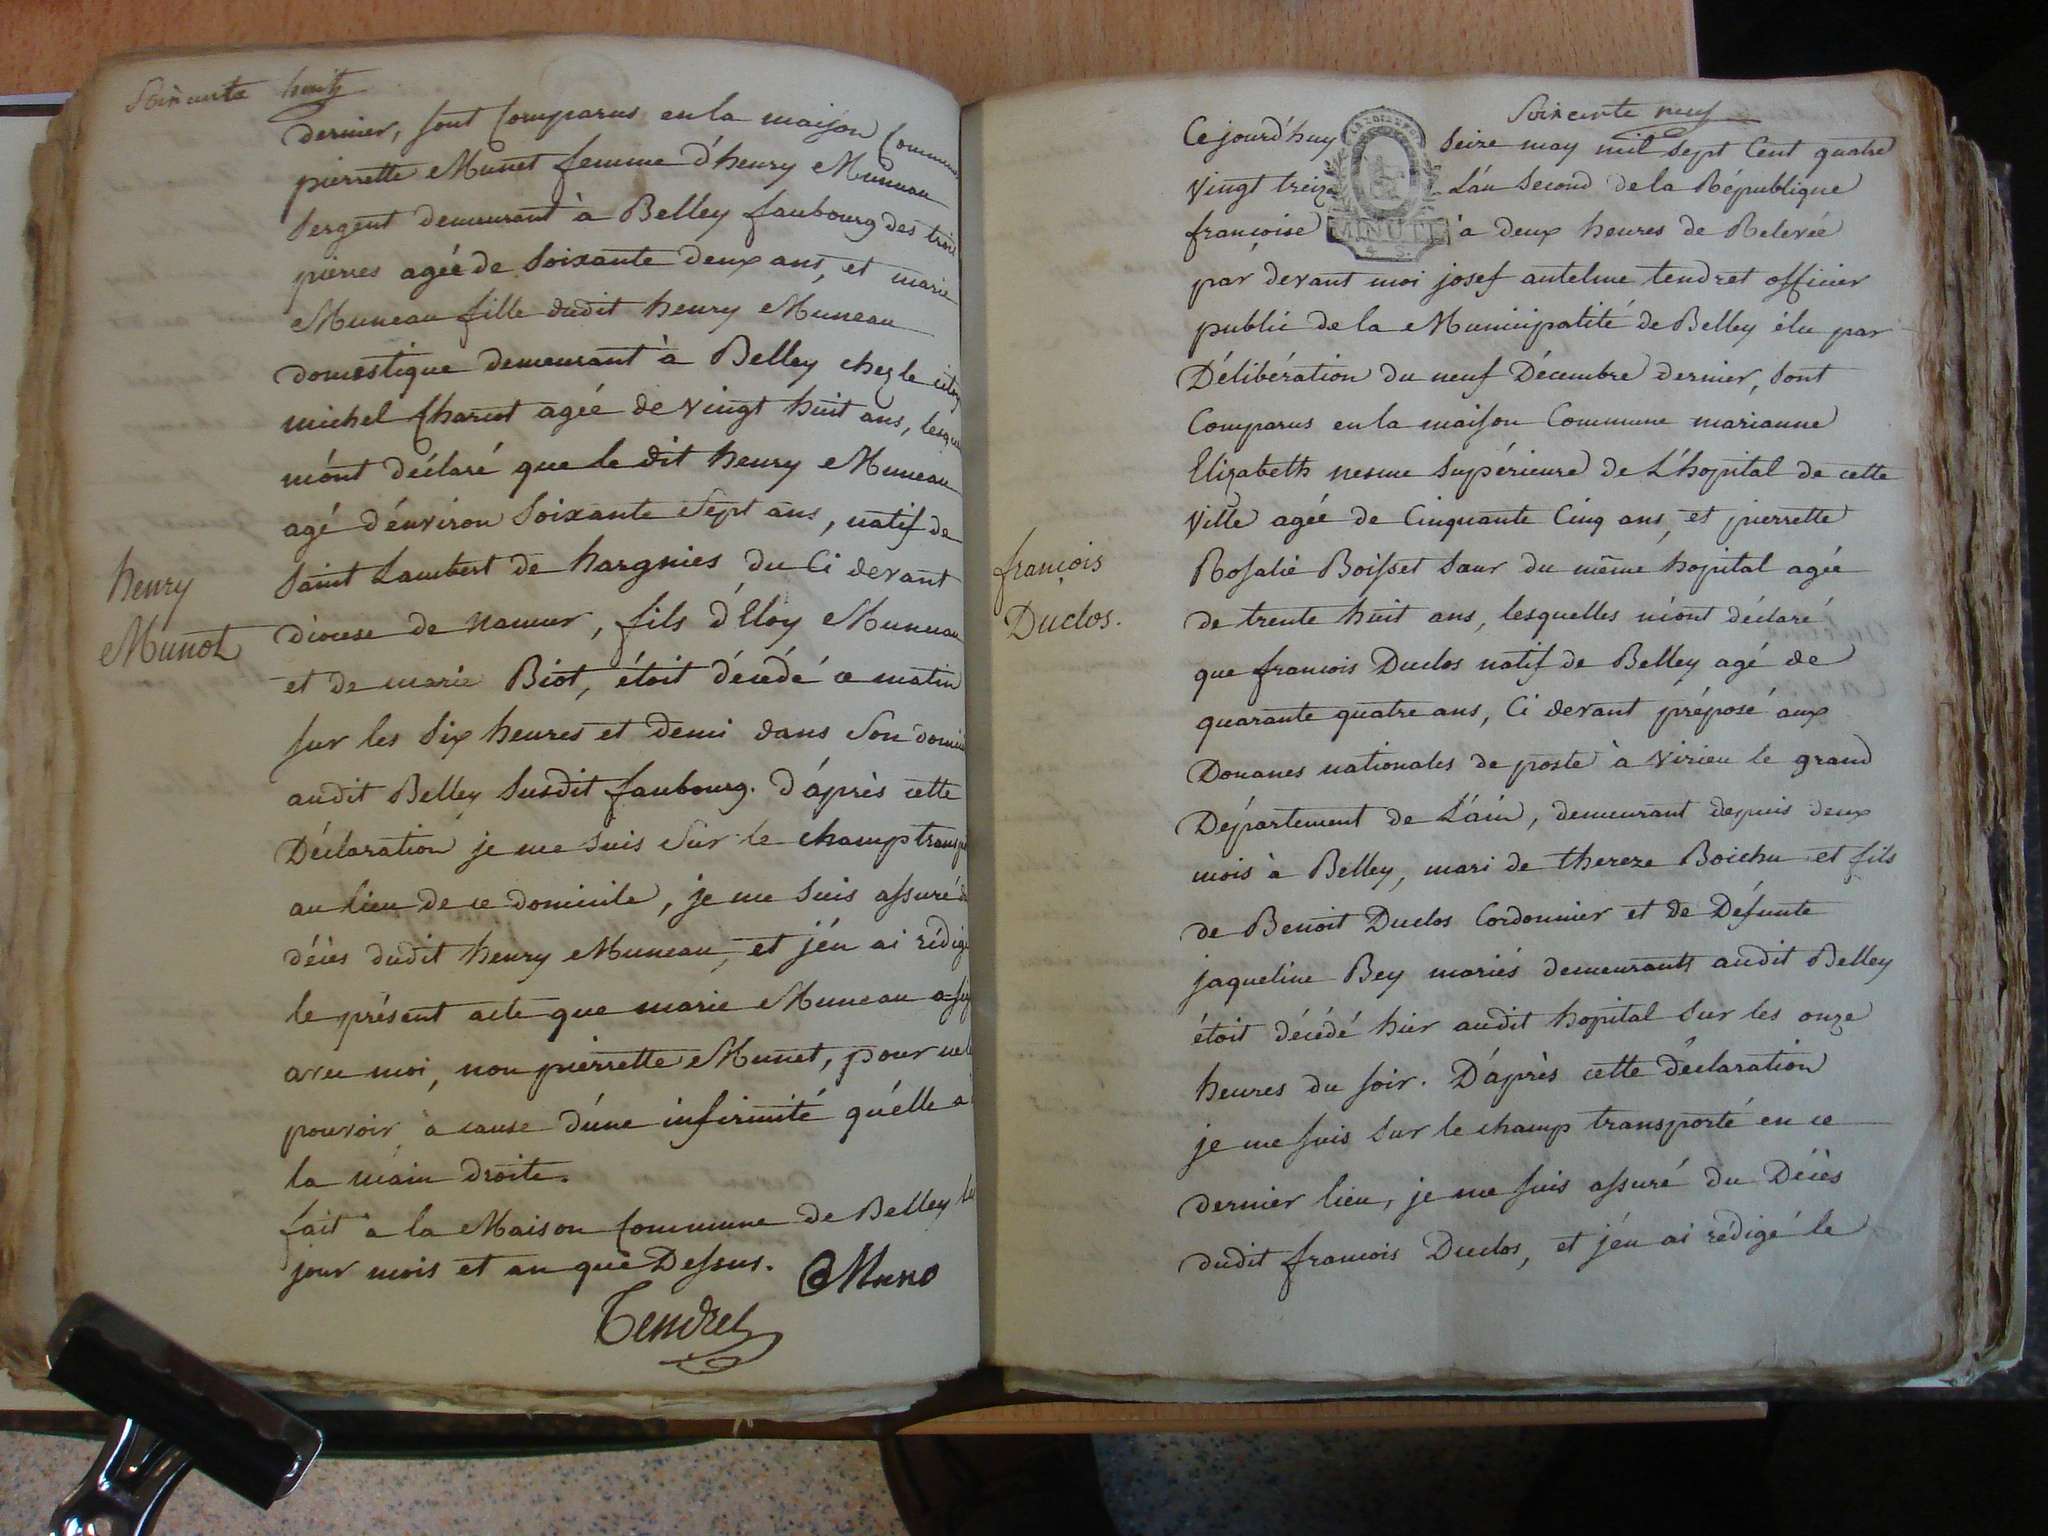 Soixante huit
dernier, sont Comparus en la maison Commune
pierrette Munet femme d'henry Muneau
Sergent demeurant à Belley faubourg des trois
pierres agée de Soixante deux ans, et marie
Muneau fille dudit henry Muneau
domestique demeurant à Belley chez le
michel Chariot agée de vingt huit ans,
m'ont déclaré que le dit henry Muneau
agé d'environ Soixante Sept ans, natif de
Saint Lambert de hargnies du Ci devant
diocese de namur, fils d'Eloy Muneau
et de marie Biot, étoit décédé ce matin
sur les Six heures et demi dans Son
audit Belley Susdit faubourg. d'après cette
Déclaration je me Suis Sur le champ
au lieu de ce domicile, je me Suis assuré
décès dudit henry Muneau, et j'en ai
le présent acte que marie Muneau a
avec moi, non pierrette Munet, pour
pouvoir à cause d'une infirmité qu'elle a
la main droite.
fait à la Maison Commune de Belley
jour mois et an que Dessus. Muno
Tendret
henry
Munot
Soixante neuf
Ce jourd'huy Seize may mil Sept Cent quatre
vingt treize L'an Second de la République
françoise MINUTE à deux heures de Relevée
par devant moi josef antelme tendret officier
public de la Municipalité de Belley élu par
Délibération du neuf Décembre dernier, Sont
Comparus en la maison Commune marianne
Elizabeth nesme Supérieure de L'hopital de cette
Ville agée de Cinquante Cinq ans, et pierrette
Rosalie Boisset Sœur du même hopital agée
de trente huit ans, lesquelles m'ont déclaré
que francois Duclos natif de Belley agé de
quarante quatre ans, Ci devant préposé aux
Douanes nationales de poste à Virieu le grand
Département de L'ain, demeurant depuis deux
mois à Belley, mari de thereze Boichu et fils
de Benoit Duclos Cordonnier et de Défunte
jaqueline Bey mariés demeurants audit Belley
étoit décédé hier audit hopital Sur les onze
heures du soir. D'après cette déclaration
je me suis Sur le champ transporté en ce
dernier lieu, je me suis assuré du Décès
dudit francois Duclos, et j'en ai rédigé le
françois
Duclos.